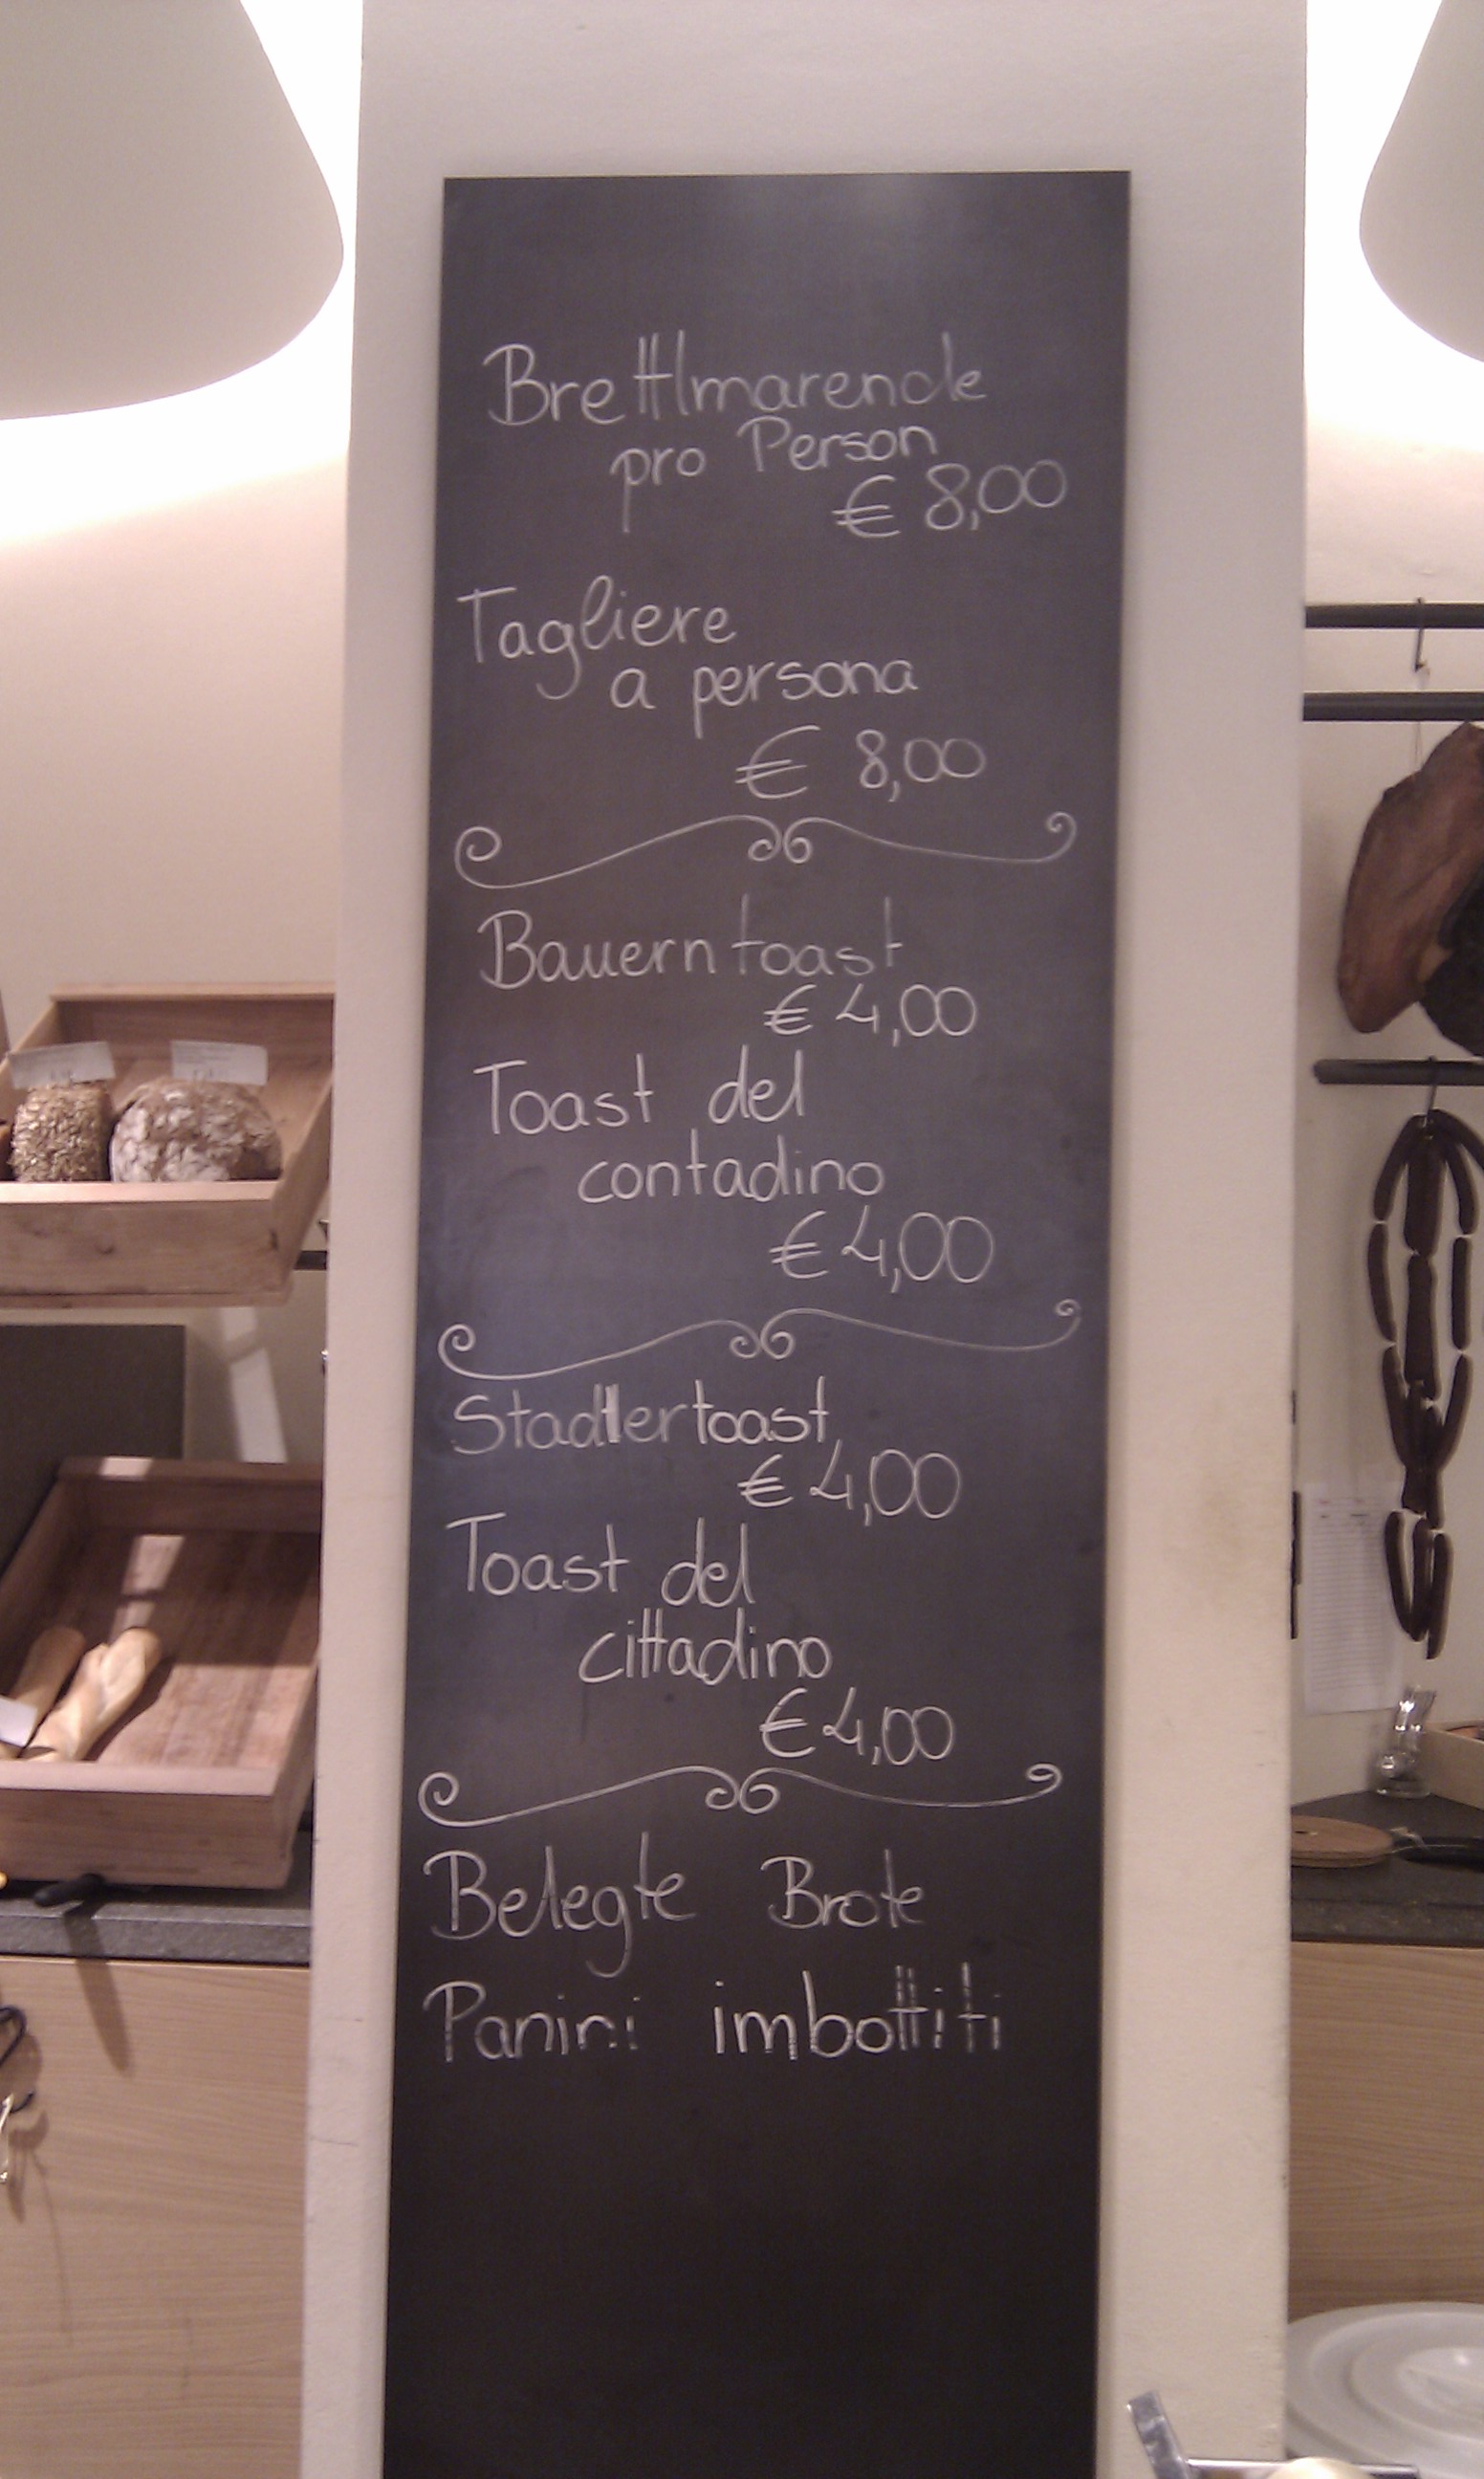 Brettlmarende
pro Person
€ 8,00
Tagliere
a persona
€ 8,00
Bauerntoast
€ 4,00
Toast del
contadino
€ 4,00
Stadtlertoast
€ 4,00
Toast del
cittadino
€ 4,00
Belegte Brote
Panini imbottiti